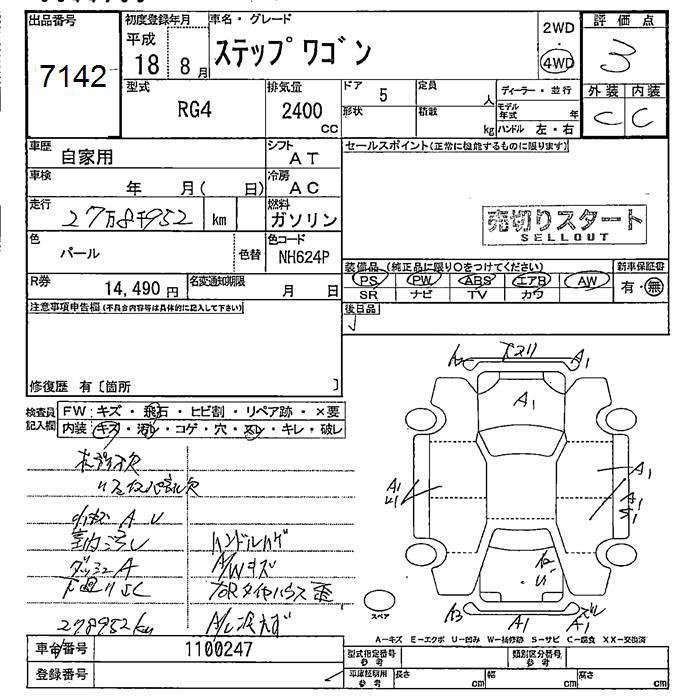 出品番号 初度登録年月 車名・グレード 2WD ・ 4WD 評価点
7142 平成 18 8月 ステップワゴン 3
型式 排気量 ドア 5 定員 人 ディーラー・並行 外装 内装
RG4 2400 cc 形状 積載 kg モデル年式 年 C C
ハンドル 左・右
車歴 自家用 シフト AT セールスポイント(正常に機能するものに限ります)
車検 年 月( 日) 冷房 AC
走行 27万8千952 km 燃料 ガソリン 売切りスタート
SELLOUT
色 パール 色替 色コード NH624P
装備品 (純正品に限り○をつけてください) 新車保証書
R券 14,490円 名変通知期限 月 日 PS PW ABS エアB AW 有・無
SR ナビ TV カワ
注意事項申告欄(不具合内容等は具体的に記入して下さい) 後日品
修復歴 有〔箇所 〕
検査員記入欄 FW キズ・飛石・ヒビ割・リペア跡・×要
内装 キズ・汚レ・コゲ・穴・スレ・キレ・破レ
小キズ A U
室内汚レ ハンドルハゲ
ダッシュA A/Wキズ
下廻りSC
278952km
A1
A1
A1
A1
A1
A3 A1 A1
スペア
A-キズ E-エクボ U-凹み W-補修跡 S-サビ C-腐食 XX-交換済
車台番号 1100247 型式指定番号 参考 類別区分番号 参考
登録番号 車庫証明用 参考 長さ cm 幅 cm 高さ cm